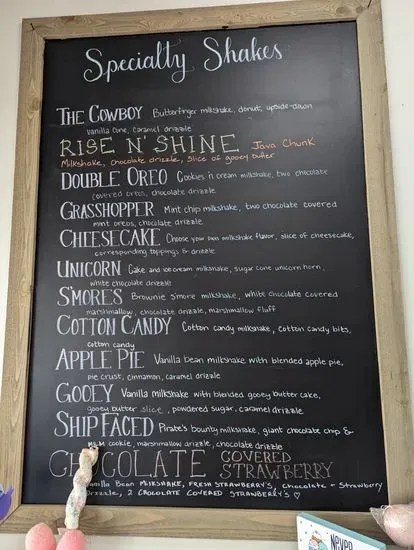 Specialty Shakes
THE COWBOY Butterfinger milkshake, donut, upside-down
vanilla cone, caramel drizzle
RISE N' SHINE Java Chunk
Milkshake, chocolate drizzle, slice of gooey butter
DOUBLE OREO Cookies n cream milkshake, two chocolate
covered oreos, chocolate drizzle
GRASSHOPPER Mint chip milkshake, two chocolate covered
mint oreos, chocolate drizzle
CHEESECAKE Choose your own milkshake flavor, slice of cheesecake,
corresponding toppings & drizzle
UNICORN Cake and ice cream milkshake, sugar cone unicorn horn,
white chocolate drizzle
S'MORES Brownie S'more milkshake, white chocolate covered
marshmallow, chocolate drizzle, marshmallow fluff
COTTON CANDY Cotton candy milkshake, cotton candy bits,
cotton candy
APPLE PIE Vanilla bean milkshake with blended apple pie,
pie crust, cinnamon, caramel drizzle
GOOEY Vanilla milkshake with blended gooey butter cake,
gooey butter slice, powdered sugar, caramel drizzle
SHIP FACED Pirate's bounty milkshake, giant chocolate chip &
M&M cookie, marshmallow drizzle, chocolate drizzle
CHOCOLATE COVERED
STRAWBERRY
Vanilla Bean MILKSHAKE, FRESH STRAWBERRY'S, chocolate + Strawberry
Drizzle, 2 CHOCOLATE COVERED STRAWBERRY'S ♡
Never